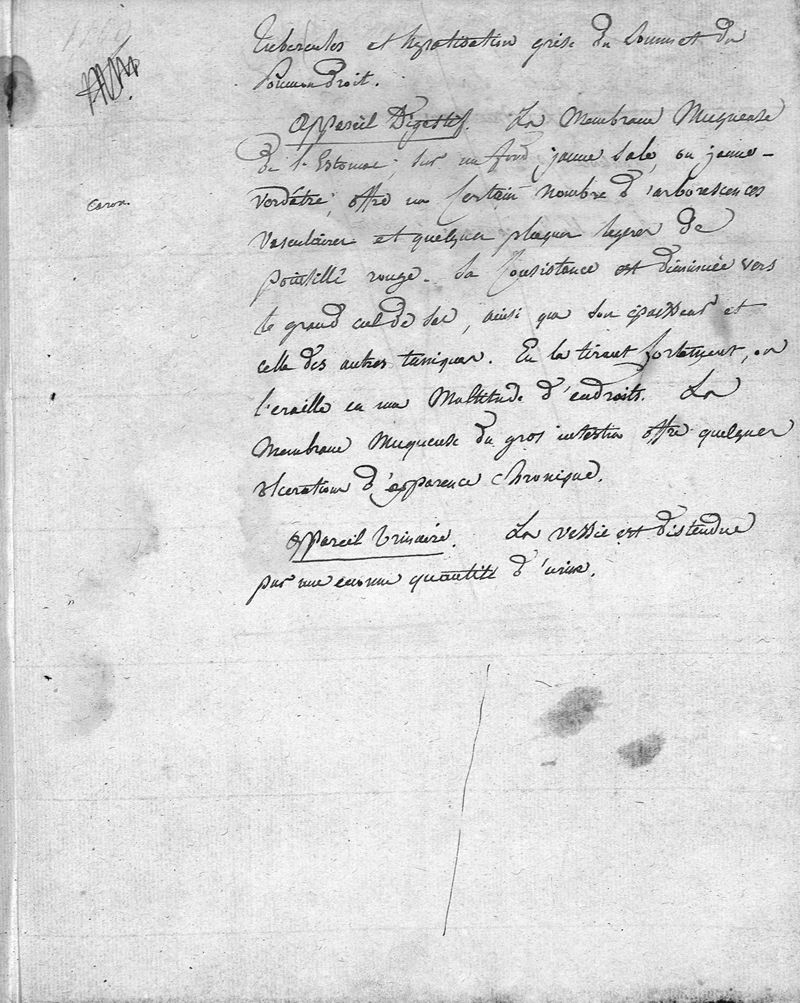 Tubercules et hépatisation grise du sommet du
Poumon droit.
Appareil Digestif. La Membrane Muqueuse
de l'Estomac, sur un fond jaune sale, ou jaune-
verdâtre, offre un certain nombre d'arborescences
Caron.
vasculaires et quelques plaques legeres de
pointillé rouge. Sa Consistance est diminuée vers
le grand cul de sac, ainsi que son épaisseur et
celle des autres tuniques. En la tirant fortement, on
l'eraille en une Multitude d'endroits. La
Membrane Muqueuse du gros intestin offre quelques
ulcerations d'apparence chronique.
Appareil Urinaire. La vessie est distendue
par une enorme quantité d'urine.